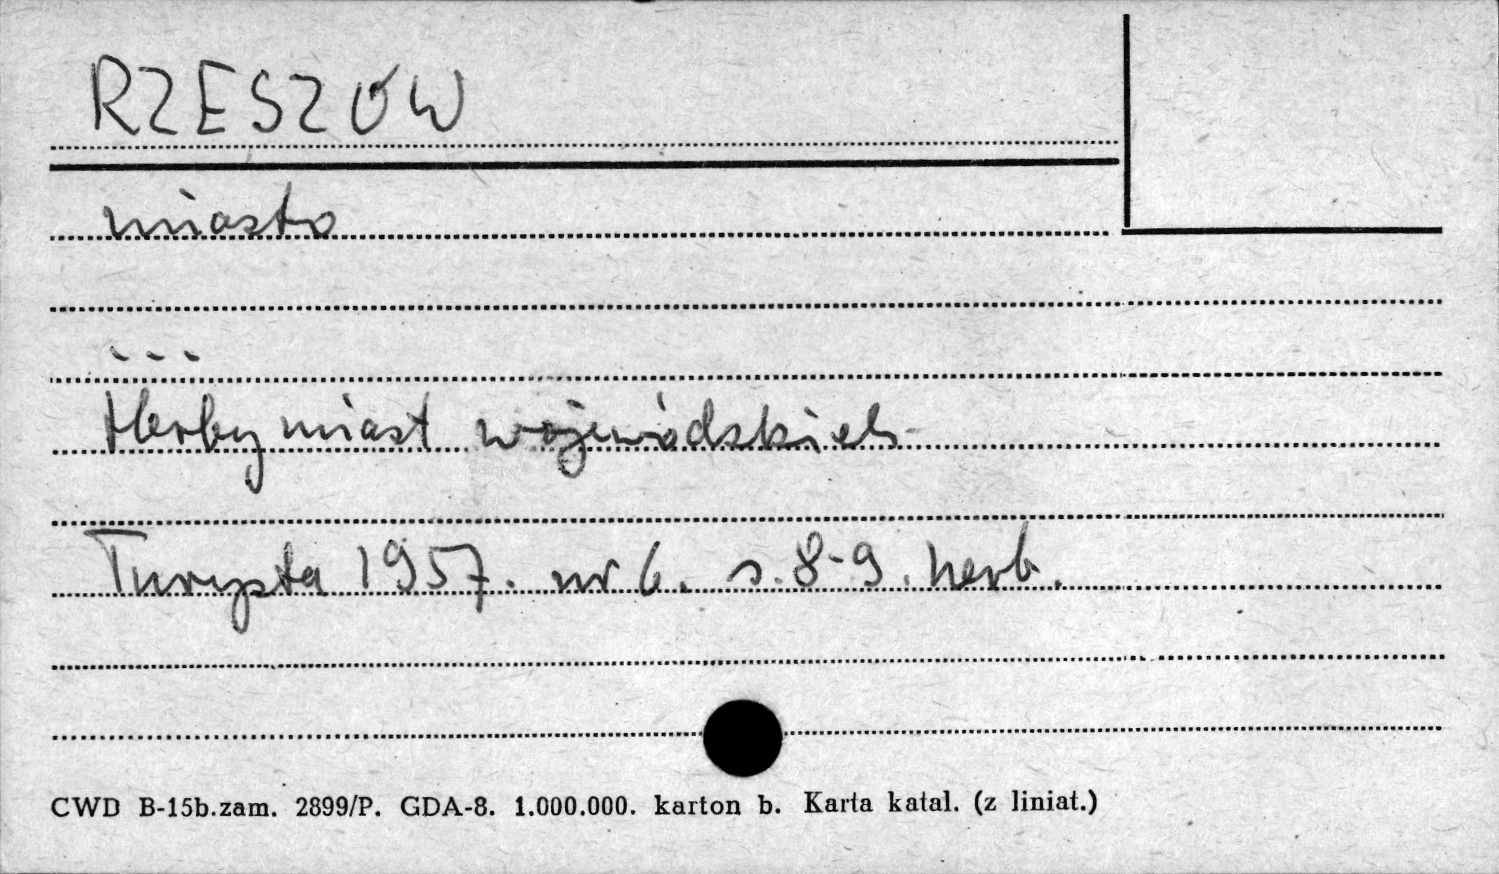 RZESZÓW
miasto
...
Herby miast wojewódzkich
Turysta 1957. nr 6. s. 8-9. herb.
CWD B-15b.zam. 2899/P. GDA-8. 1.000.000. karton b. Karta katal. (z liniat.)